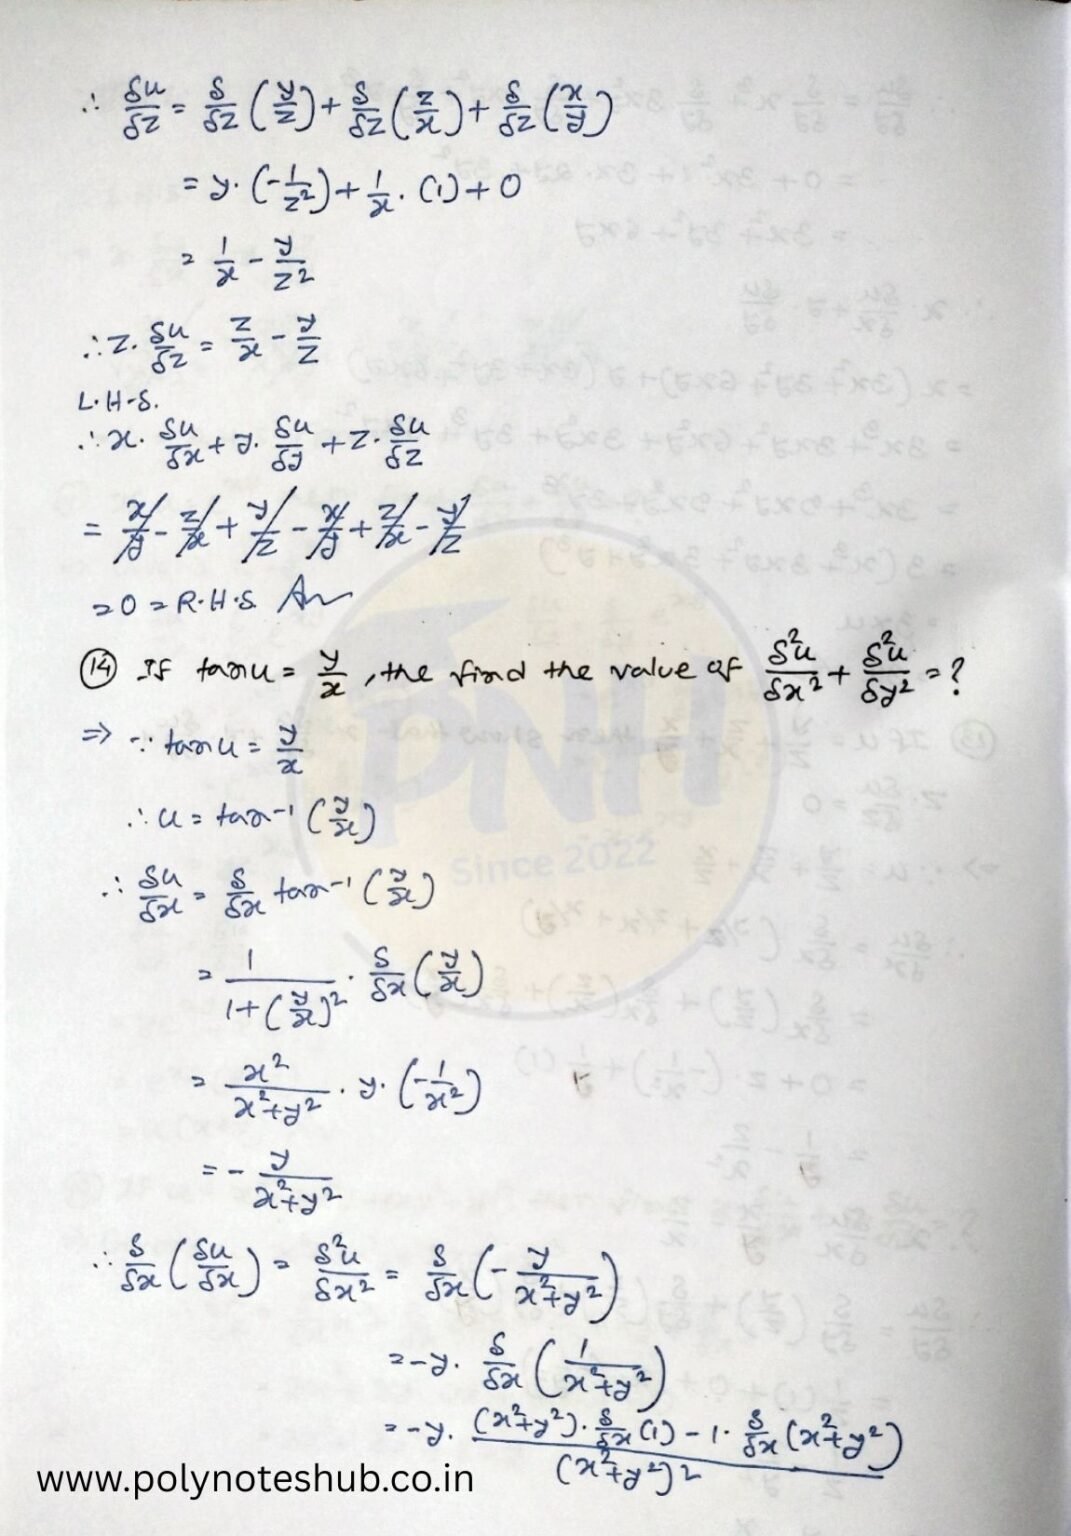 ∴ δu/δz = δ/δz (y/z) + δ/δz (z/x) + δ/δz (x/y)
= y. (-1/z²) + 1/x . (1) + 0
= 1/x - y/z²
∴ z. δu/δz = z/x - y/z
L.H.S.
∴ x. δu/δx + y. δu/δy + z. δu/δz
= x/y - z/x + y/z - x/y + z/x - y/z
= 0 = R.H.S. Ans
(14) If tan u = y/x , the find the value of δ²u/δx² + δ²u/δy² = ?
⇒ ∵ tan u = y/x
∴ u = tan⁻¹ (y/x)
∴ δu/δx = δ/δx tan⁻¹ (y/x)
= 1/(1+(y/x)²) . δ/δx (y/x)
= x²/(x²+y²) . y. (-1/x²)
= - y/(x²+y²)
∴ δ/δx (δu/δx) = δ²u/δx² = δ/δx (- y/(x²+y²))
= -y. δ/δx (1/(x²+y²))
= -y. ((x²+y²). δ/δx (1) - 1. δ/δx (x²+y²))/(x²+y²)²
PNH
Since 2022
www.polynoteshub.co.in